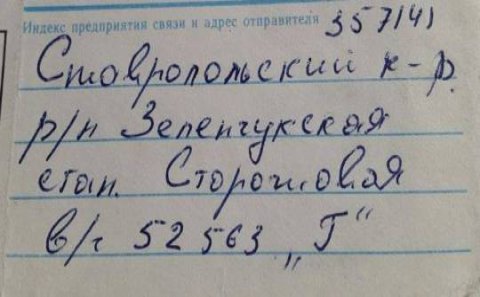 Индекс предприятия связи и адрес отправителя 357141
Ставропольский к-р.
р/н Зеленчукская
стан. Сторожовая
в/ч 52563 „Г“